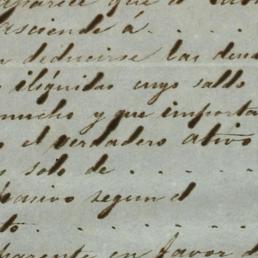 aparece que el
asciende á . . . .
deducirse las deu
ilíquidas cuyo saldo
mucho y que importa
el verdadero ativo
solo de . . . . .
pasivo segun el
. . . . .
parente en favor d